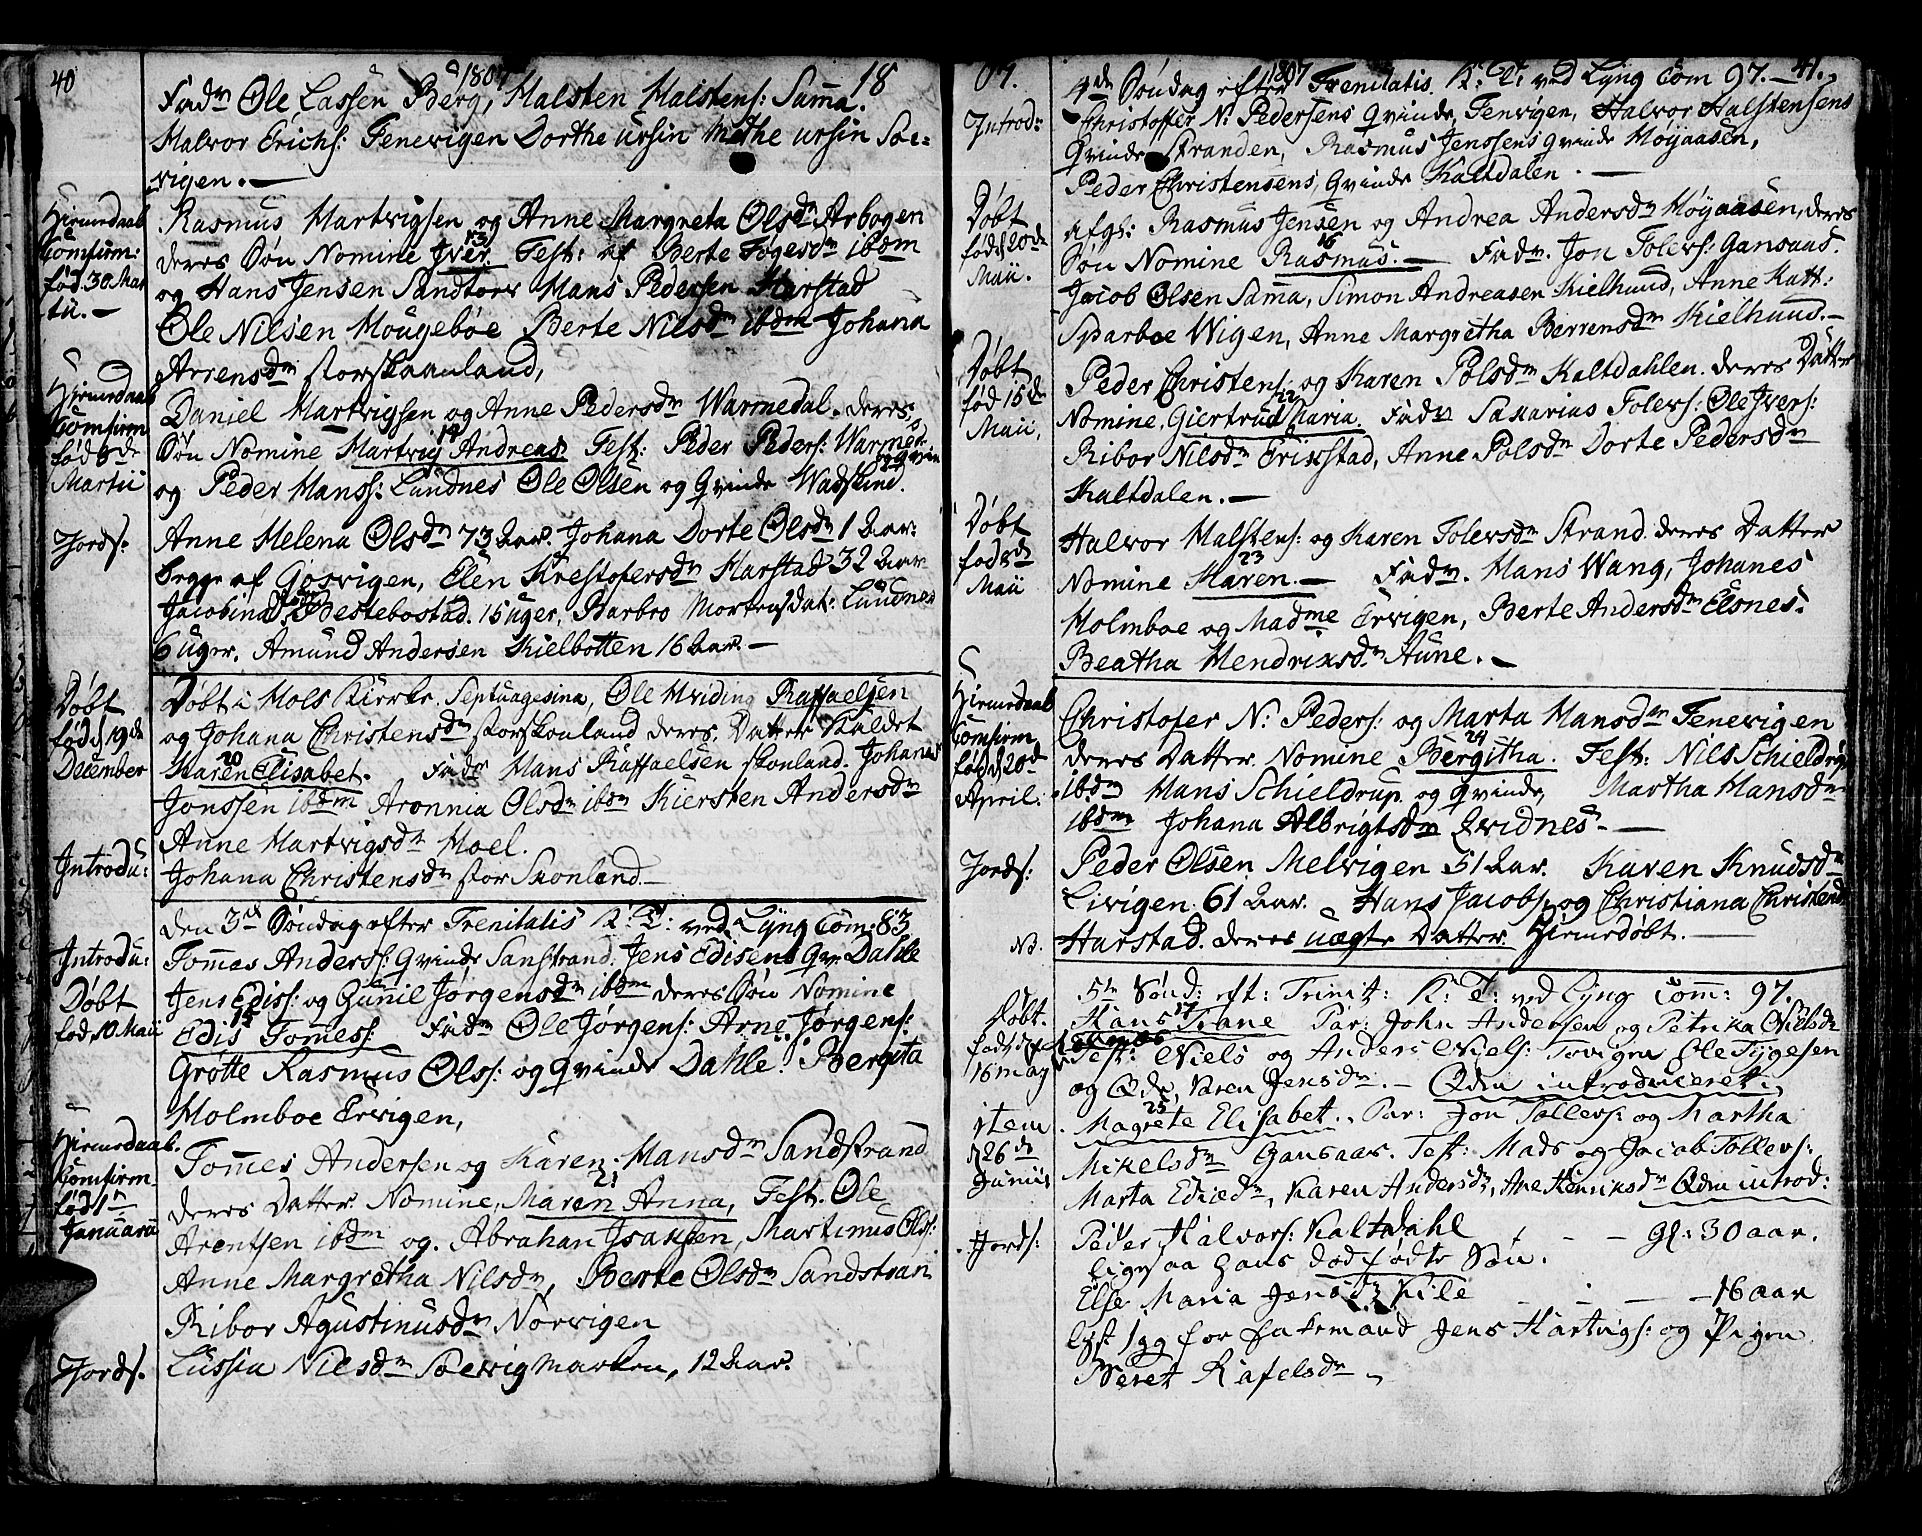 40
1807
18
Fadr Ole Lassen Berg, Halsten Halstens: Samma.
Halvor Erichs: Fenevigen Dorthe ursin Mathe ursin Sør=
vigen. —
Hiemedaab
Comfirm:
fød. 30 Mar
tii. —
Rasmus Hartvigsen og Anne Margreta Olsdr Arbogen
deres Søn Nomine Iver. 13 Test: af Berte Togesdr ibdm
og Hans Jensen Sandtorv Hans Pedersen Harstad
Ole Nilsen Hougebøe Berte Nilsdr ibdm Johana
Arrensdr storskaanland,
Hiemedaab
Comfirm
fød 6de
Martii
Daniel Hartvigsen og Anne Pedersdr Warmedal. deres
Søn Nomine Hartvig Andreas 14 Test: Peder Peders: Warmed:
og Qvin
og Peder Hanss: Lundnes Ole Olsen og Qvinde Wadskind.
Jords:
Anne Helena Olsdr 73 Aar. Johana Dorte Olsdr 1 Aar.
begge af Gosvigen, Elen Krestofersdr Harstad 32 Aar
Jacobina Bestebostad. 15 uger, Barbro Mortensdat: Lundnes
6 Uger. Amund Andersen Kielbotten 16 Aar. —
Døbt
fød d 19de
December
Døbt i Hols Kirke Septuagesina, Ole Hviding Raffaelsen
og Johana Christensdr storskonland deres Datter Kaldet
Karen Elisabet. 20 Fadr Hans Raffaelsen skonland. Johanes
Jonssen ibdm Aronnia Olsdr ibdm Kiersten Andersdr
Anne Hartvigsdr Hoel.
Introdu:
Johana Christensdr stor Skonland. —
Den 3de Søndag efter Trenitatis K: T: ved Lyng Com: 83
Introdu:
Tommas Anderss: Qvinde Sanstrand. Jens Edisens Qv: Dahle
Døbt
fød. 10. Maii
Jens Ediss: og Gunil Jørgensdr ibdm deres Søn Nomine
Edis Tommess: 15 Fadr Ole Jørgens: Arne Jørgens:
Grøtte Rasmus Olss: og Qvinde Dahle. Bergita
Holmboe Ervigen,
Hiemedaab.
Comfirm.
fød 1te
Januarii
Tommes Andersen og Karen Hansdr Sandstrand
deres Datter Nomine, Maren Anna, 21 Test. Ole
Arentsen ibdm og. Abrahan Isaksen, Martinus Ols:
Anne Margretha Nilsdr, Berte Olsdr Sandstran
Ribor Agustinusdr Norvigen
Jords.
Lussia Nilsdr Sørvigmarken, 12 Aar.
07.
1807
41.
4de Søndag efter Trenitatis. K: T: ved Lyng Com 97. —
Introd:
Christoffer N: Pedersens Qvinde, Fenvigen, Halvor Halstensens
Qvinde Stranden, Rasmus Jenssens Qvinde Høyaasen,
Peder Christensens, Qvinde Kaltdalen. —
Døbt
fød d 20de
Maii.
afgl: Rasmus Jensen og Andrea Andersdr Høyaasen, deres
Søn Nomine Rasmus. 16 — Fadr. Jon Tolevs: Gansaas.
Jacob Olsen Samma, Simon Andreasen Kielhund, Anne Katt:
Sparboe Wigen, Anne Margretha Berrensdr Kielhund. —
Døbt
fød 15de
Maii,
Peder Christens: og Karen Polsdr Kaltdahlen. deres Datter
Nomine, Giertrud Maria. 22 Fadr Saxarias Tolevs: Ole Ivers:
Ribor Nilsdr Erikstad, Anne Polsdr Dorte Pedersdr
Kaltdalen. —
Døbt
fød de
Maii
Halvor Halstens: og Karen Tolevsdr Strand. deres Datter
Nomine Karen. 23 — Fadr. Hans Wang, Johanes
Holmboe og Madme Ervigen, Berte Andersdr Elsnes.
Beatha Hendrixsdr Aune. —
Hiemedaab
Comfirm
fød d 20de
April.
Christofer N: Peders: og Marta Hansdr Fenevigen
deres Datter Nomine Bergitha. 24 Test: Nils Schieldrup
ibdm Hans Schieldrup og Qvinde, Martha Hansdr
ibdm Johana Albrigtsdr Qvidnes. —
Jords:
Peder Olsen Melvigen 51 Aar. Karen Knudsdr
Livigen. 61 Aar. Hans Jacobs: og Christiana Christensd
No.
Harstad. deres uægte Datter. Hiemedøbt. —
5te Sønd: eft: Trinit: K: T: ved Lyng Comm: 97.
Døbt.
født d
16 may
Hans Trane 17 Par: John Andersen og Petrika Nielsdr
Test: Niels og Anders Niels: Tovigen Ole Tygesen
og Qde, Karen Jensdr. — Qden introduceret.
item
d 26de
Junii
Magrete Elisabet. 25 Par: Jon Tollevs: og Martha
Mikelsdr Gansaas. Test: Mads og Jacob Tollevs:
Marta Ediedr, Karen Andersdr, Ane Henriksdr Qden introd:
Jords:
Peder Halvors: Kaltdahl, — — gl: 30 aar.
ligesaa hans dødfødte Søn.
Else Maria Jensdr Kile — — — 16 aar
lyst 1gg for Enkemand Jens Hartvigs: og Pigen
Beret Rafelsdr.